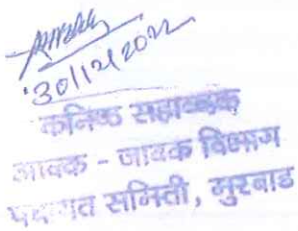 30/12/2022
कनिष्ठ सहाय्यक
आवक - जावक विभाग
पंचायत समिती, मुरबाड